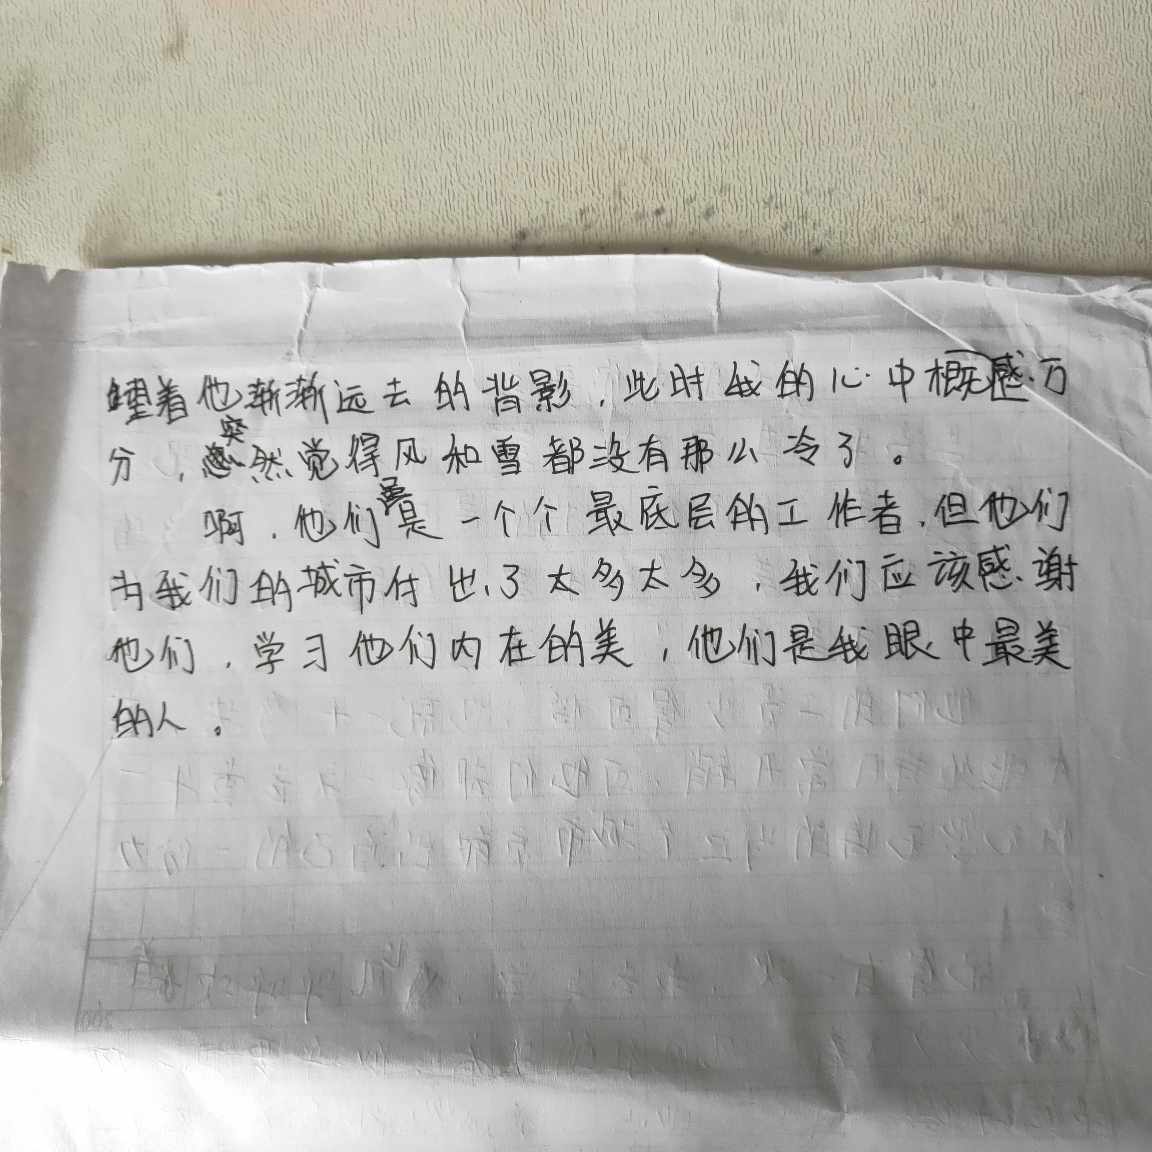 望着他渐渐远去的背影，此时我的心中概感万
分，突然觉得风和雪都没有那么冷了。
啊，他们虽是一个个最底层的工作者，但他们
为我们的城市付出了太多太多，我们应该感谢
他们，学习他们内在的美，他们是我眼中最美
的人。